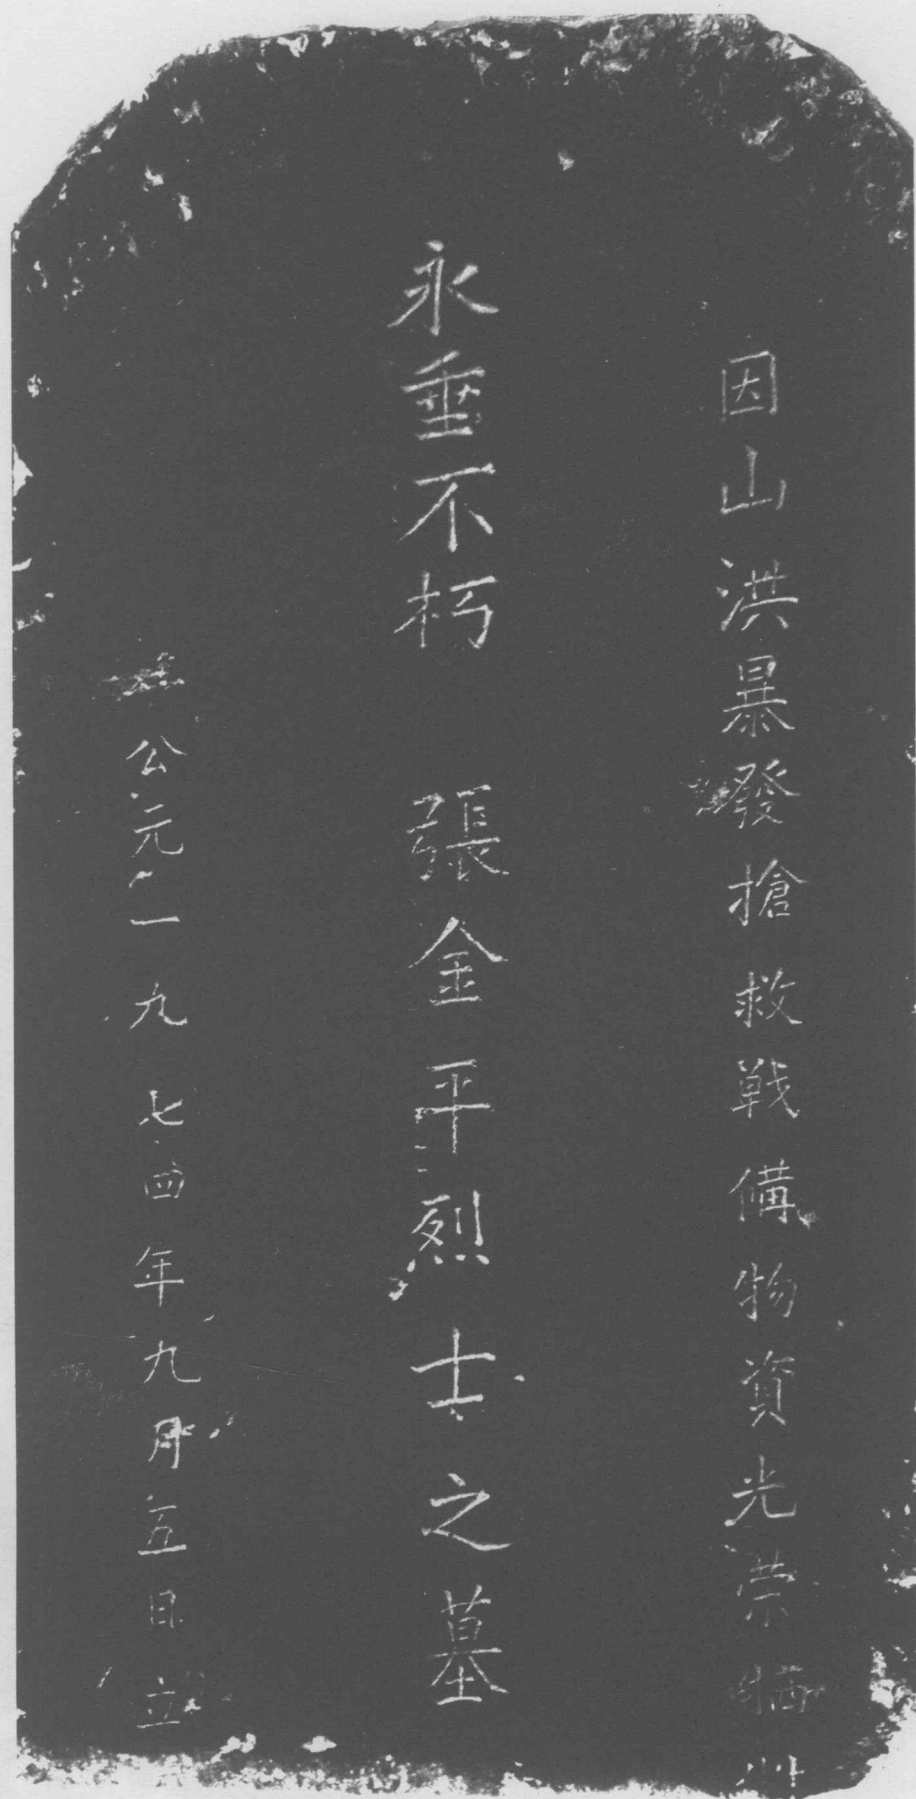 因山洪暴發搶救戰備物資光荣牺牲
永垂不朽 張金平烈士之墓
公元一九七四年九月五日立